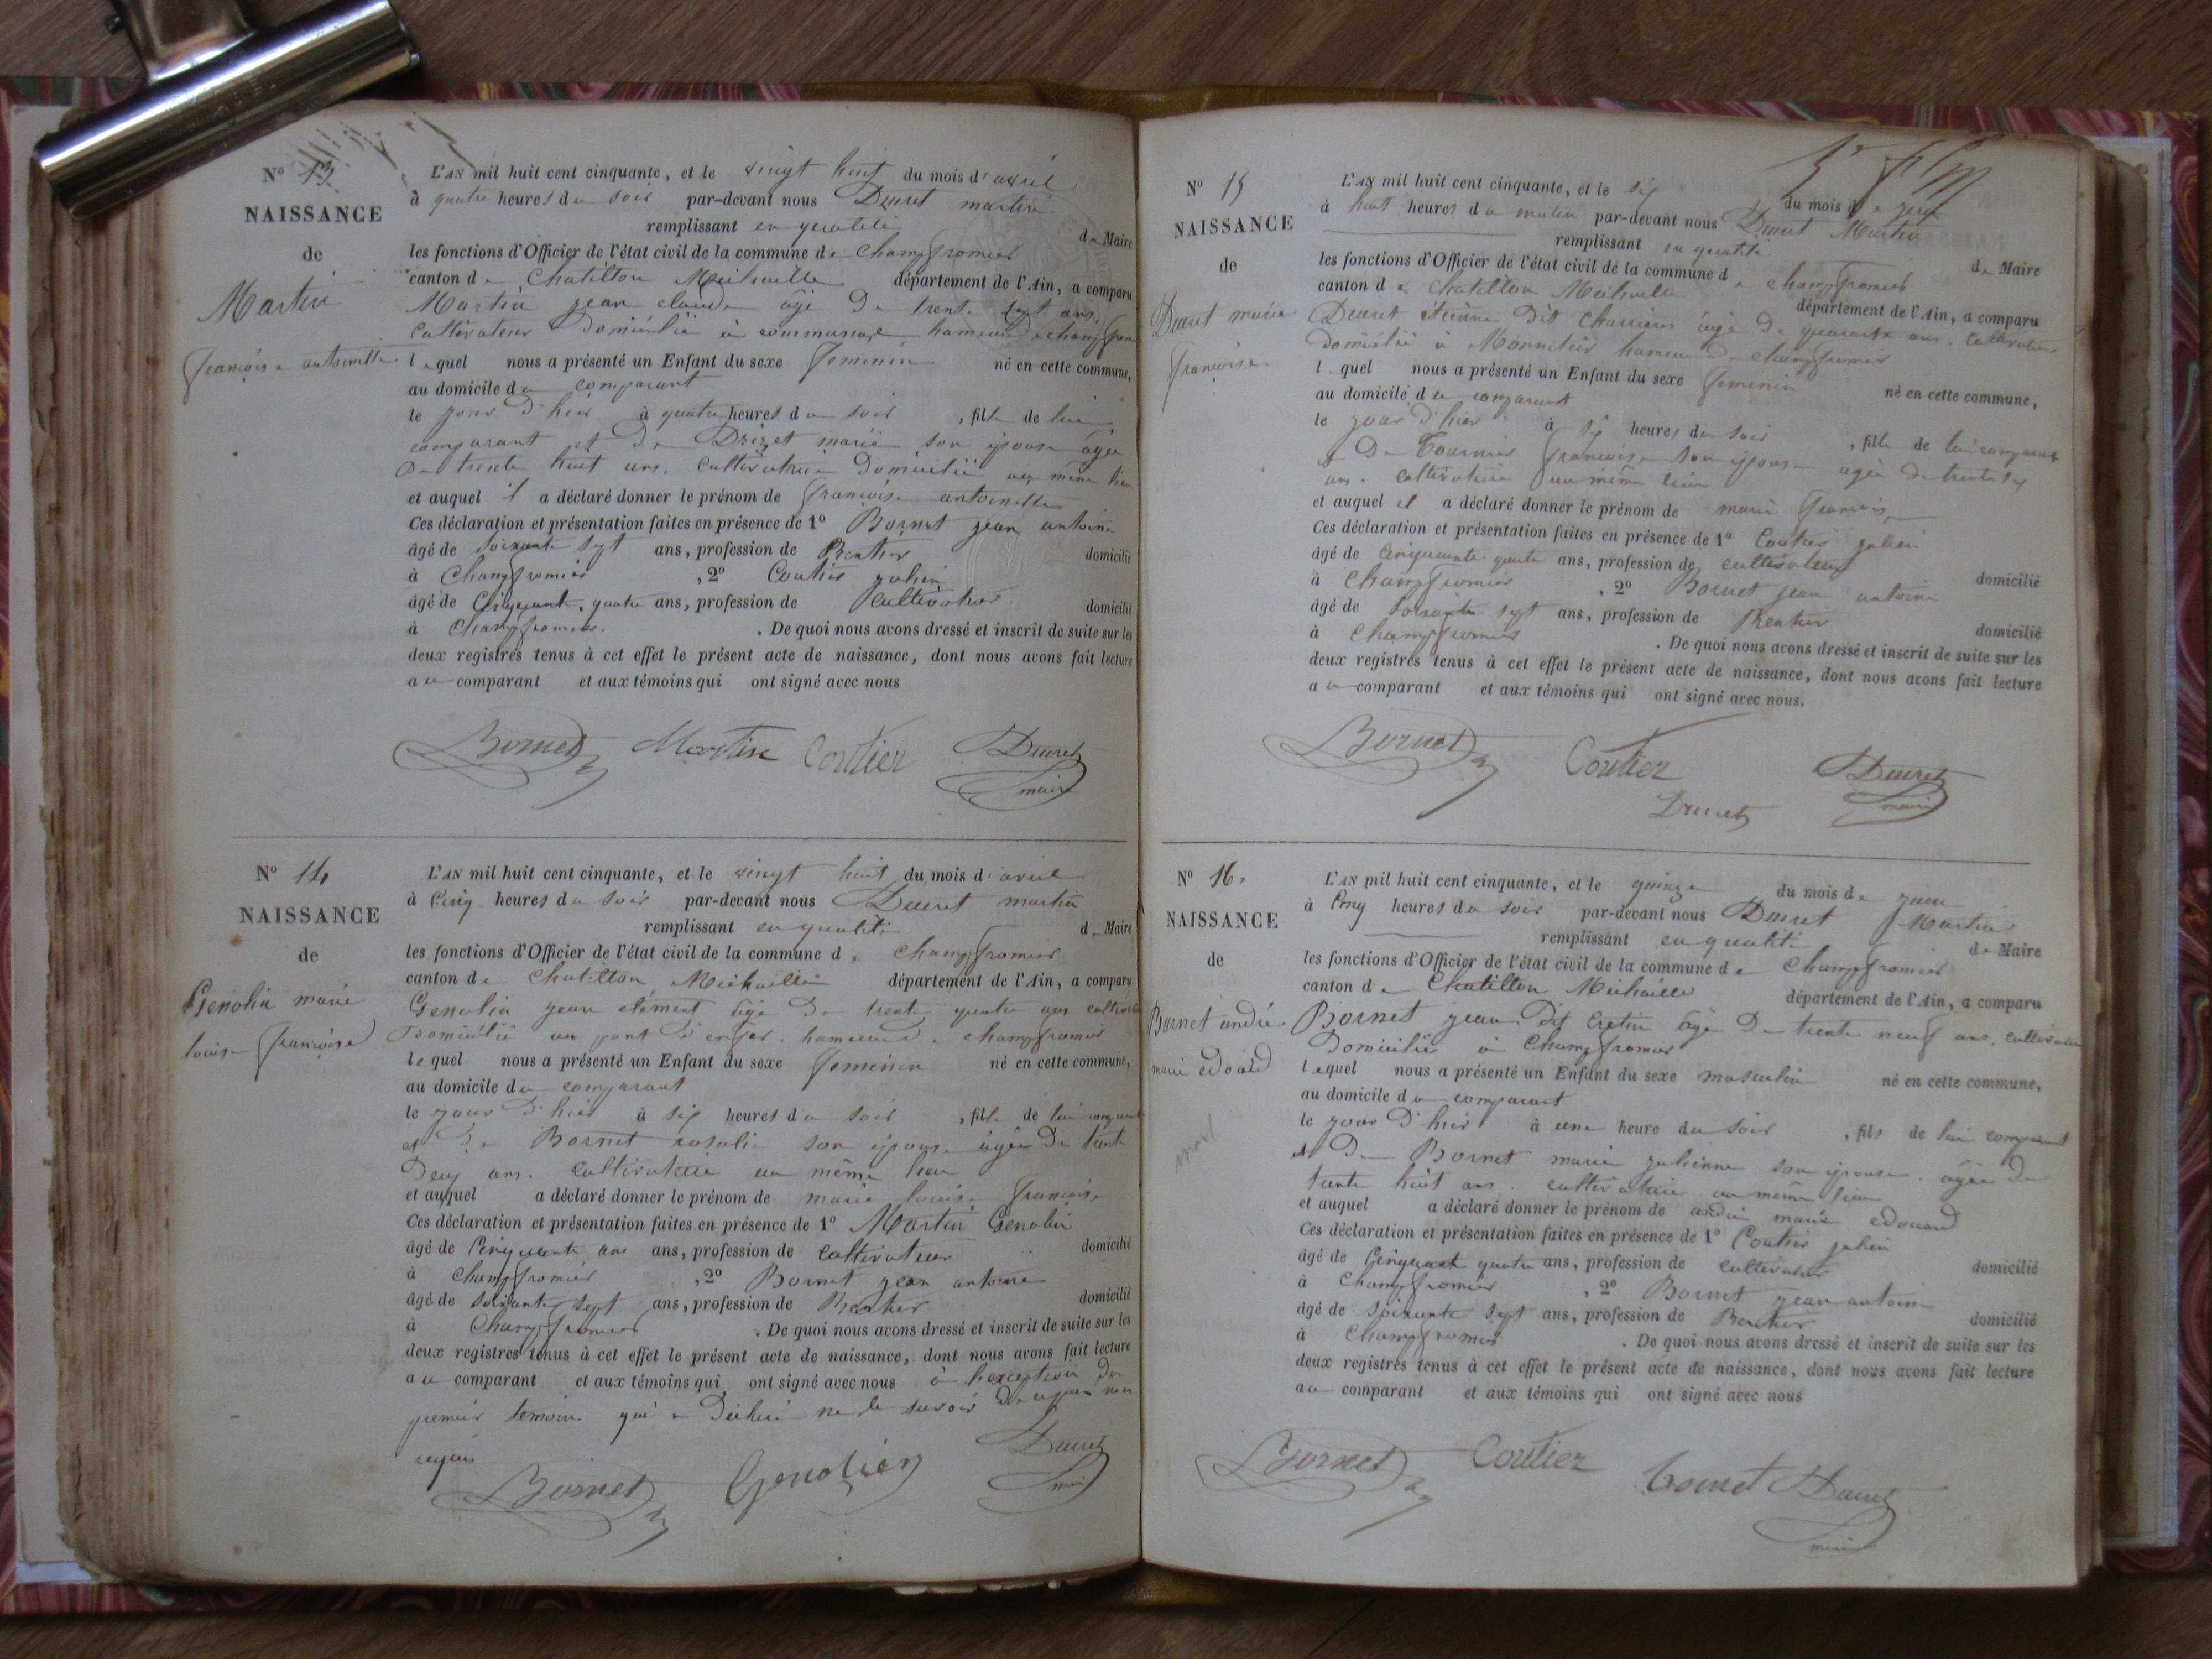 N° 13.
NAISSANCE
de
Martin
françoise antoinette
L'AN mil huit cent cinquante, et le vingt huit du mois d'avril
à quatre heures du soir par-devant nous Ducret martin
remplissant en qualité de Maire
les fonctions d'Officier de l'état civil de la commune de Champfromier
canton de Chatillon Michaille département de l'Ain, a comparu
Martin jean claude âgé de trente sept ans,
Cultivateur domicilié à communaz hameau de champfromier
lequel nous a présenté un Enfant du sexe féminin né en cette commune,
au domicile du comparant
le jour d'hier à quatre heures du soir, fille de lui
comparant et de Drizet marie son épouse âgée
de trente huit ans, cultivatrice domiciliée au même lieu
et auquel il a déclaré donner le prénom de françoise antoinette
Ces déclaration et présentation faites en présence de 1° Bornet jean antoine
âgé de soixante sept ans, profession de Rentier domicilié
à Champfromier, 2° Coutier julien
âgé de Cinquante quatre ans, profession de Cultivateur domicilié
à Champfromier. De quoi nous avons dressé et inscrit de suite sur les
deux registres tenus à cet effet le présent acte de naissance, dont nous avons fait lecture
au comparant et aux témoins qui ont signé avec nous
Bornet Martin Coutier Ducret
maire
N° 14
NAISSANCE
de
Genolin marie
louise françoise
L'AN mil huit cent cinquante, et le vingt huit du mois d'avril
à Cinq heures du soir par-devant nous Ducret martin
remplissant en qualité de Maire
les fonctions d'Officier de l'état civil de la commune de Champfromier
canton de Chatillon Michaille département de l'Ain, a comparu
Genolin jean clément âgé de trente quatre ans cultivateur
Domicilié au pont d'enfer hameau de champfromier
lequel nous a présenté un Enfant du sexe féminin né en cette commune,
au domicile du comparant
le jour d'hier à six heures du soir, fille de lui comparant
et de Bornet rosalie son épouse âgée de trente
deux ans. cultivatrice au même lieu
et auquel a déclaré donner le prénom de marie louise françoise
Ces déclaration et présentation faites en présence de 1° Martin Genolin
âgé de Cinquante ans ans, profession de Cultivateur domicilié
à Champfromier, 2° Bornet jean antoine
âgé de soixante sept ans, profession de Rentier domicilié
à Champfromier. De quoi nous avons dressé et inscrit de suite sur les
deux registres tenus à cet effet le présent acte de naissance, dont nous avons fait lecture
au comparant et aux témoins qui ont signé avec nous à l'exception du
premier temoin qui a déclaré ne le savoir de ce par nous
requis
Bornet Genolin Ducret
maire
N° 15
NAISSANCE
de
Ducret marie
françoise
L'AN mil huit cent cinquante, et le six du mois de juin
à huit heures du matin par-devant nous Ducret Martin
remplissant en qualité de Maire
les fonctions d'Officier de l'état civil de la commune de champfromier
canton de Chatillon Michaille département de l'Ain, a comparu
Ducret étienne dit Charrière âgé de quarante ans. Cultivateur
domicilié à Monnetier hameau de champfromier
lequel nous a présenté un Enfant du sexe féminin né en cette commune,
au domicile du comparant
le jour d'hier à six heures du soir, fille de lui comparant
et De Tournier françoise son épouse âgée de trente six
ans. cultivatrice au même lieu
et auquel il a déclaré donner le prénom de marie françoise
Ces déclaration et présentation faites en présence de 1° Coutier julien
âgé de Cinquante quatre ans, profession de cultivateur domicilié
à Champfromier, 2° Bornet jean antoine
âgé de soixante sept ans, profession de Rentier domicilié
à Champfromier. De quoi nous avons dressé et inscrit de suite sur les
deux registres tenus à cet effet le présent acte de naissance, dont nous avons fait lecture
au comparant et aux témoins qui ont signé avec nous.
Bornet Coutier Ducret
Ducret maire
N° 16.
NAISSANCE
de
Bornet andré
marie edouard
mort
L'AN mil huit cent cinquante, et le quinze du mois de juin
à Cinq heures du soir par-devant nous Ducret Martin
remplissant en qualité de Maire
les fonctions d'Officier de l'état civil de la commune de Champfromier
canton de Chatillon Michaille département de l'Ain, a comparu
Bornet jean dit Cretin âgé de trente neuf ans. cultivateur
Domicilié à Champfromier
lequel nous a présenté un Enfant du sexe masculin né en cette commune,
au domicile du comparant
le jour d'hier à une heure du soir, fils de lui comparant
et De Bornet marie julienne son épouse âgée de
trente huit ans. cultivatrice au même lieu
et auquel a déclaré donner le prénom de andré marie edouard
Ces déclaration et présentation faites en présence de 1° Coutier julien
âgé de Cinquante quatre ans, profession de cultivateur domicilié
à Champfromier, 2° Bornet jean antoine
âgé de soixante sept ans, profession de Rentier domicilié
à Champfromier. De quoi nous avons dressé et inscrit de suite sur les
deux registres tenus à cet effet le présent acte de naissance, dont nous avons fait lecture
au comparant et aux témoins qui ont signé avec nous
Bornet Coutier Bornet Ducret
maire